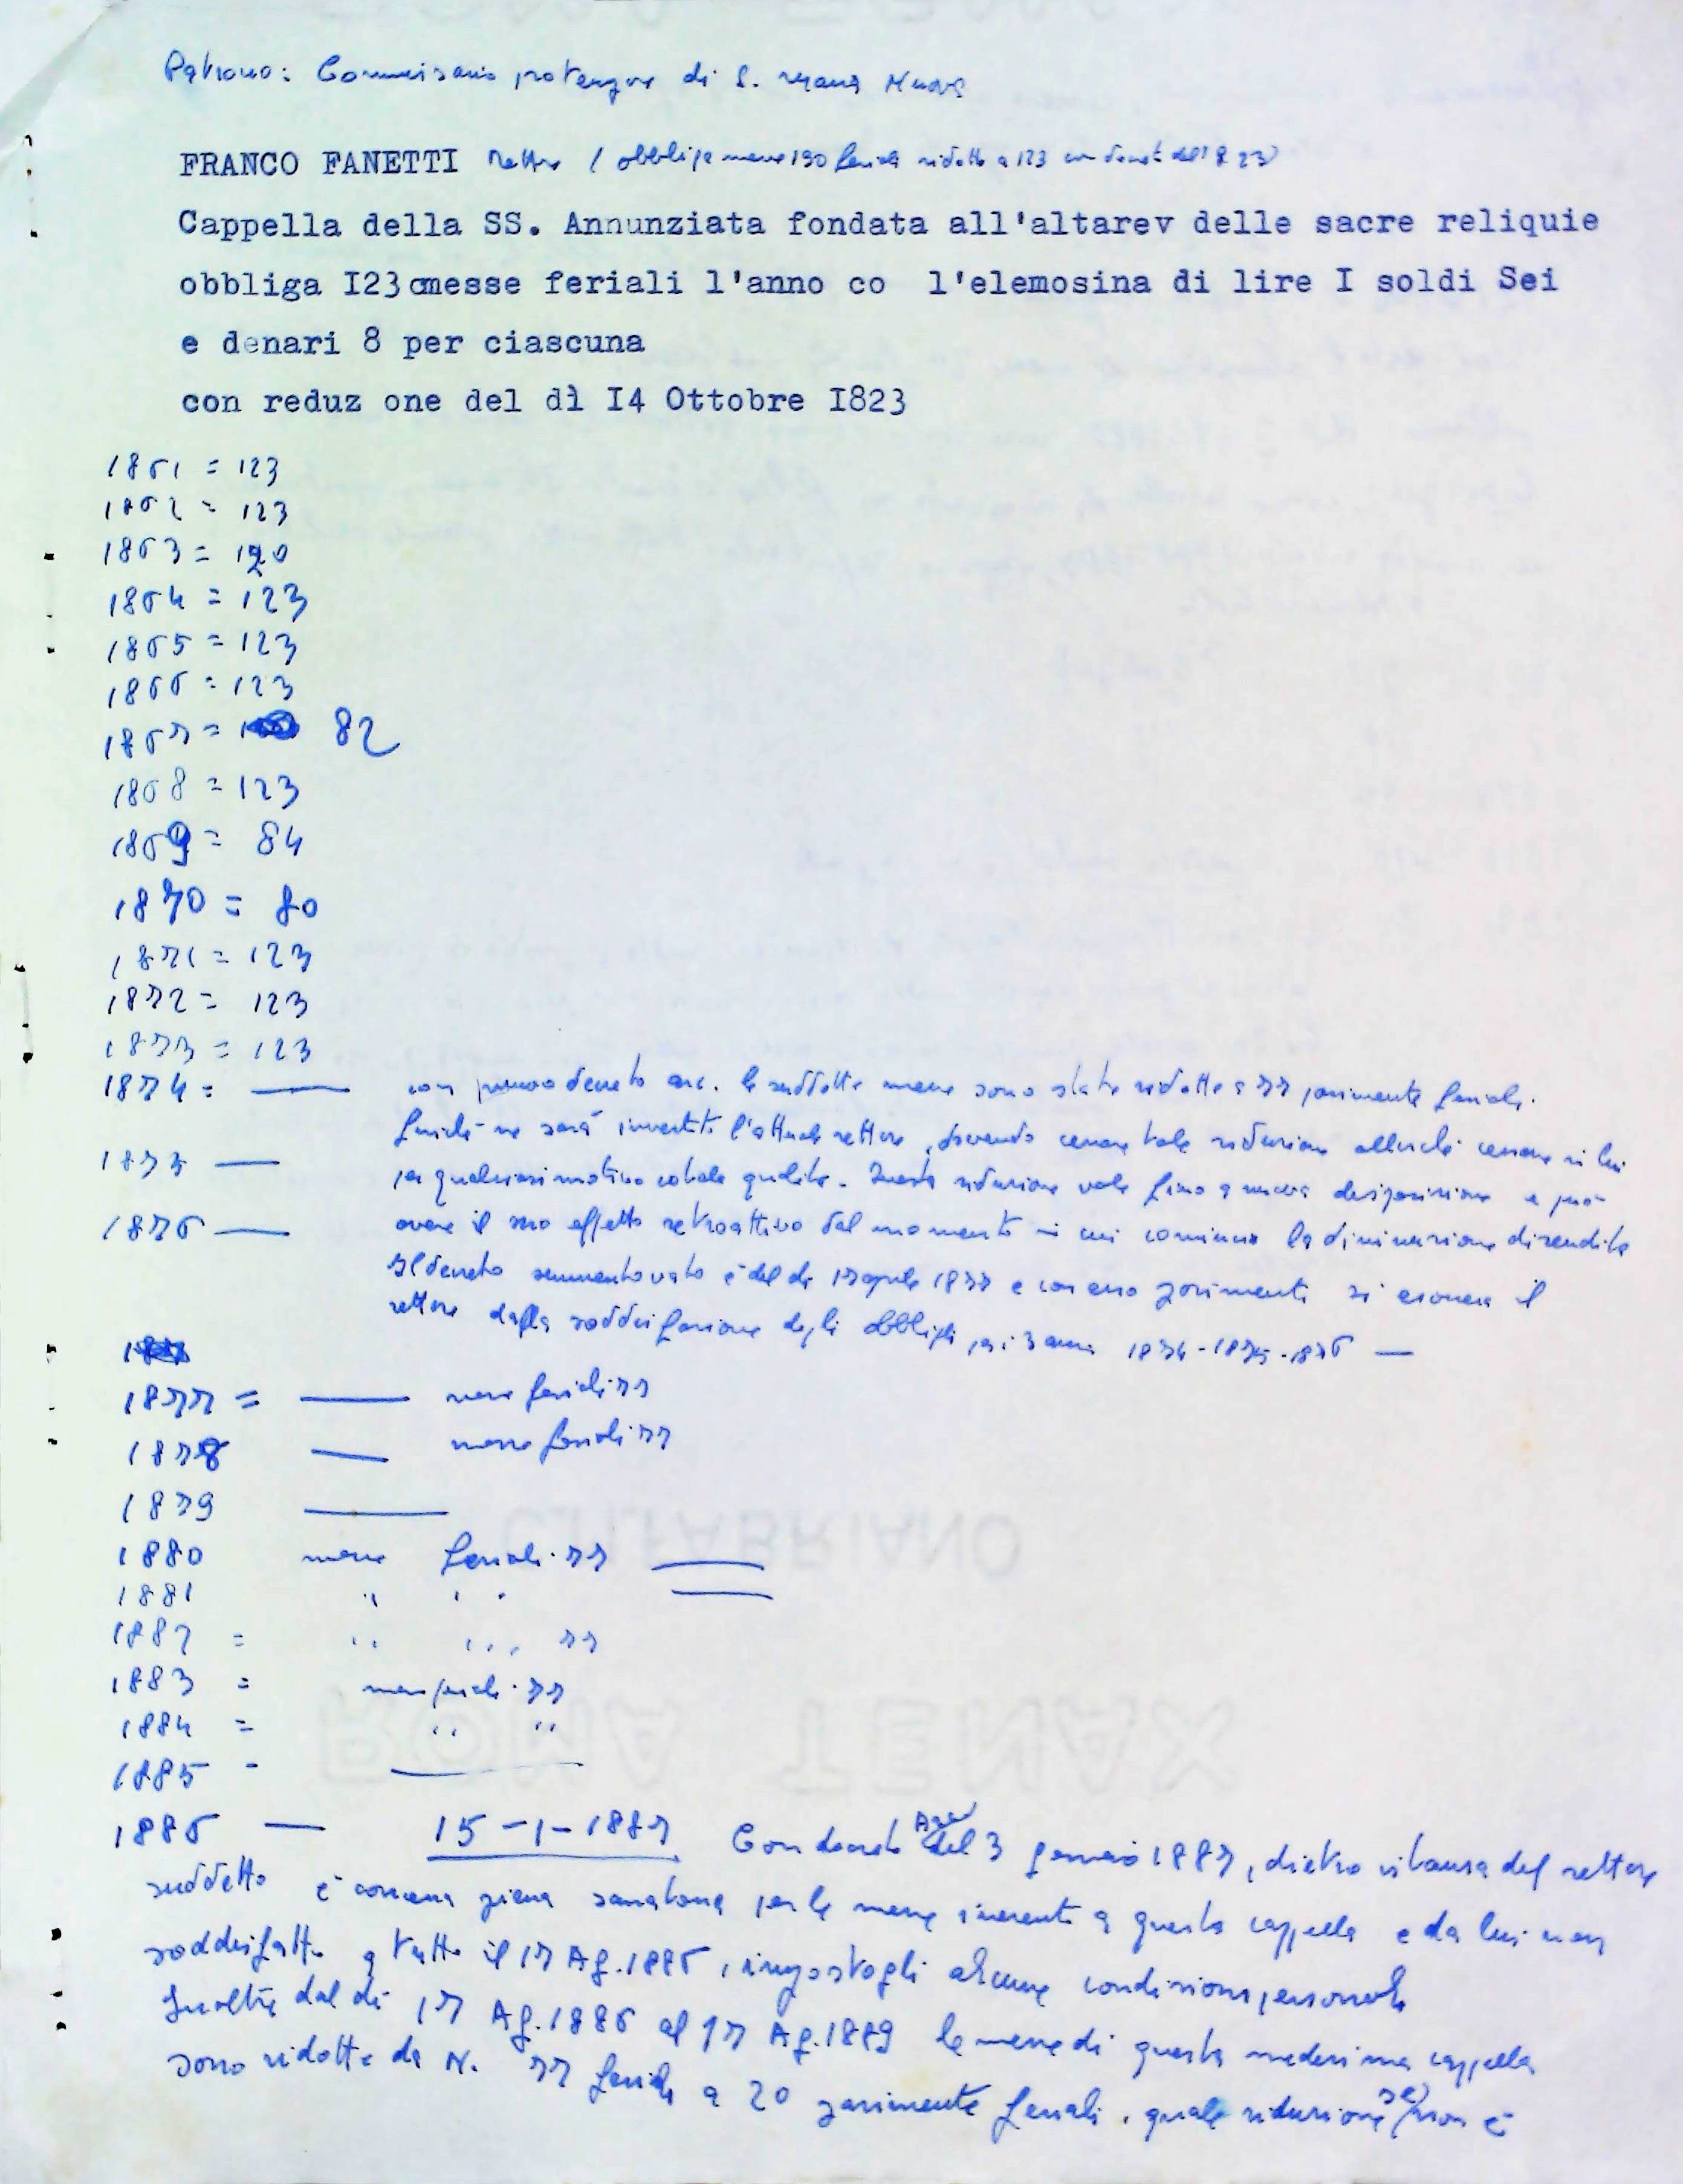 Patrono: Commissario pro tempore di S. Maria Nuova
FRANCO FANETTI Rettore ( obbligo messe 190 feriali ridotte a 123 con decreto del 1823)
Cappella della SS. Annunziata fondata all'altarev delle sacre reliquie
obbliga I23 messe feriali l'anno co l'elemosina di lire I soldi Sei
e denari 8 per ciascuna
con reduz one del dì I4 Ottobre I823
1861 = 123
1862 = 123
1863 = 120
1864 = 123
1865 = 123
1866 = 123
1867 = 82
1868 = 123
1869 = 84
1870 = 80
1871 = 123
1872 = 123
1873 = 123
1874 = — con decreto arc. le suddette messe sono state ridotte a 77 parimente feriali.
finché ne sarà investito l'attuale rettore, dovendo cessare tale riduzione allorché cessasse in lui
1875 — per qualsiasi motivo cotale qualità. Questa riduzione vale fino a nuova disposizione e può
1876 — avere il suo effetto retroattivo dal momento in cui cominciò la diminuzione di rendite
Il decreto summentovato è del dì 17 aprile 1877 e con esso parimenti si esonera il
rettore dalla soddisfazione degli obblighi per i 3 anni 1874-1875-1876 —
1877 = — messe feriali 77
1878 — messe feriali 77
1879 —
1880 messe feriali 77 —
1881 " " " —
1882 = " " 77
1883 = messe feriali 77
1884 = " "
1885 - —
1886 — 15-1-1887 Con decreto del 3 gennaio 1887, dietro istanza del rettore
suddetto è concessa piena sanatoria per le messe inerenti a questa cappella e da lui non
soddisfatte a tutto il 17 Ag. 1886, impostogli alcune condizioni personali
Inoltre dal dì 17 Ag. 1886 al 17 Ag. 1889 le messe di questa medesima cappella
sono ridotte da N. 77 feriali a 20 parimente feriali, quale riduzione se non è
C.M.FABRIANO
ROMA TENAX